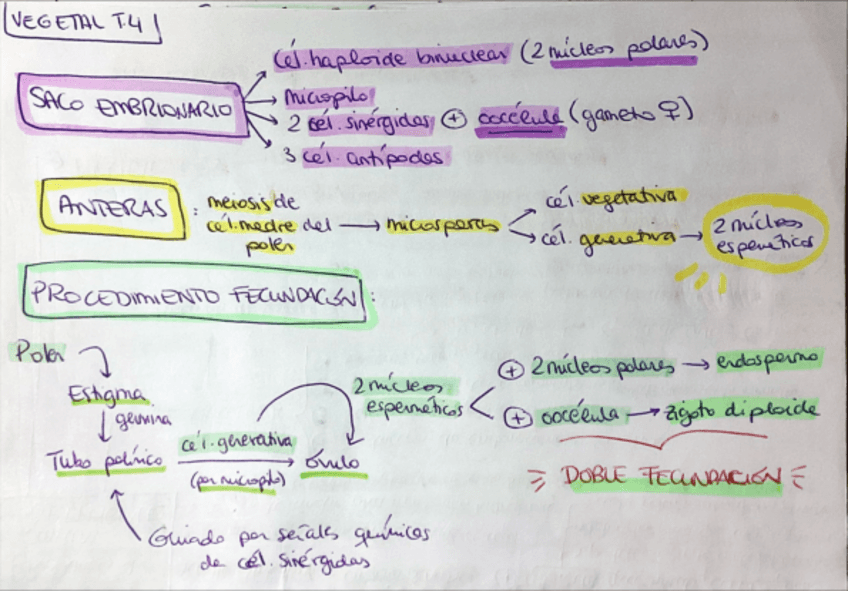 VEGETAL T.4
SACO EMBRIONARIO
cél. haploide binuclear (2 núcleos polares)
micropilo
2 cél. sinérgidas + oocélula (gameto ♀)
3 cél. antípodas
ANTERAS : meiosis de
cél. madre del → microsporas
polen
cél. vegetativa
cél. generativa → 2 núcleos
espermáticos
PROCEDIMIENTO FECUNDACIÓN:
Polen
Estigma
germina
Tubo polínico
cél. generativa
(por micropilo)
óvulo
2 núcleos
espermáticos
+ 2 núcleos polares → endospermo
+ oocélula → zigoto diploide
DOBLE FECUNDACIÓN
Guiado por señales químicas
de cél. sinérgidas